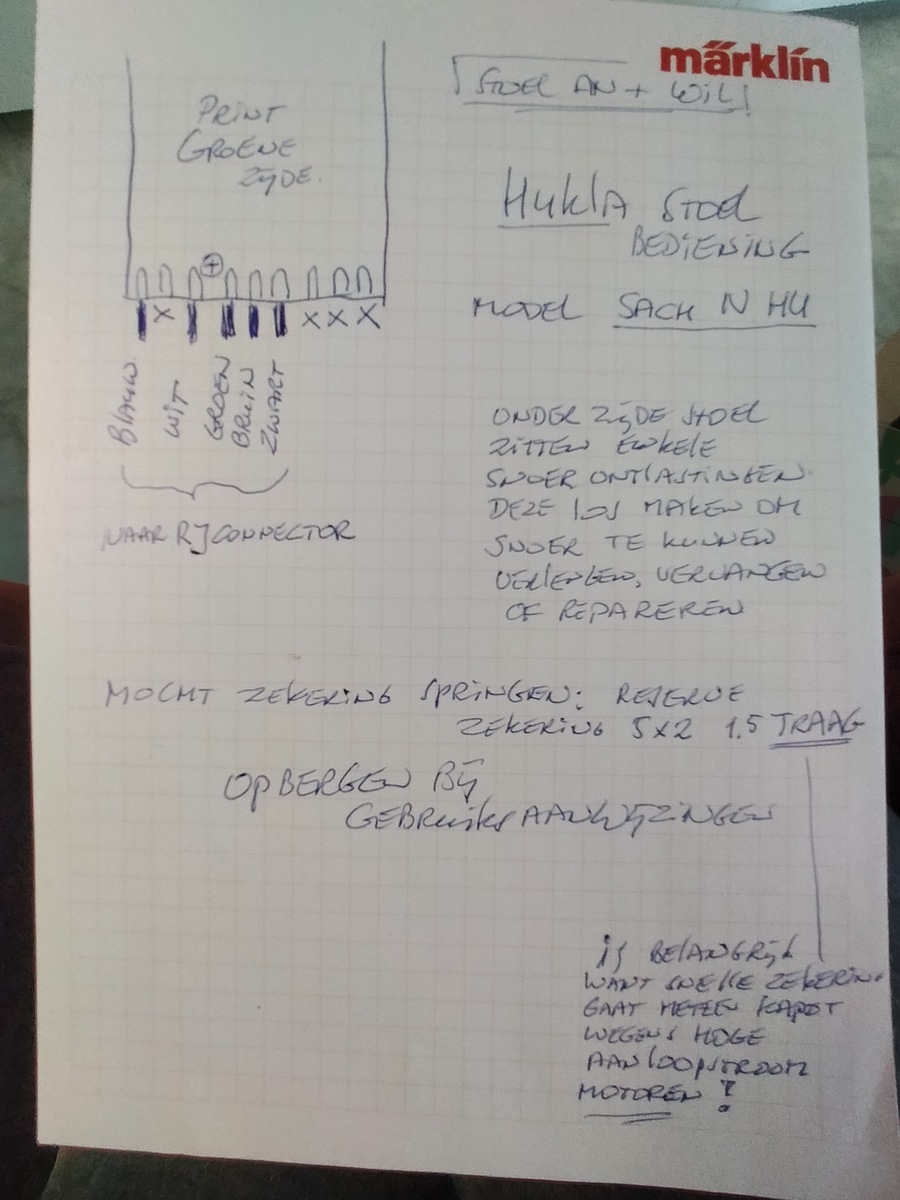 märklin
STOEL AN + WIL!
PRINT
GROENE
ZIJDE.
HUKLA STOEL
BEDIENING
MODEL SACH N HU
+
X X X X
BLAUW
WIT
GROEN
BRUIN
ZWART
NAAR RJ CONNECTOR
ONDER ZIJDE STOEL
ZITTEN ENKELE
SNOER ONTLASTINGEN.
DEZE LOS MAKEN OM
SNOER TE KUNNEN
VERLENGEN, VERVANGEN
OF REPAREREN
MOCHT ZEKERING SPRINGEN: RESERVE
ZEKERING 5X2 1.5 TRAAG
OPBERGEN BIJ
GEBRUIKSAANWIJZINGEN
IS BELANGRIJK
WANT SNELLE ZEKERING
GAAT METEEN KAPOT
WEGENS HOGE
AANLOOPSTROOM
MOTOREN !